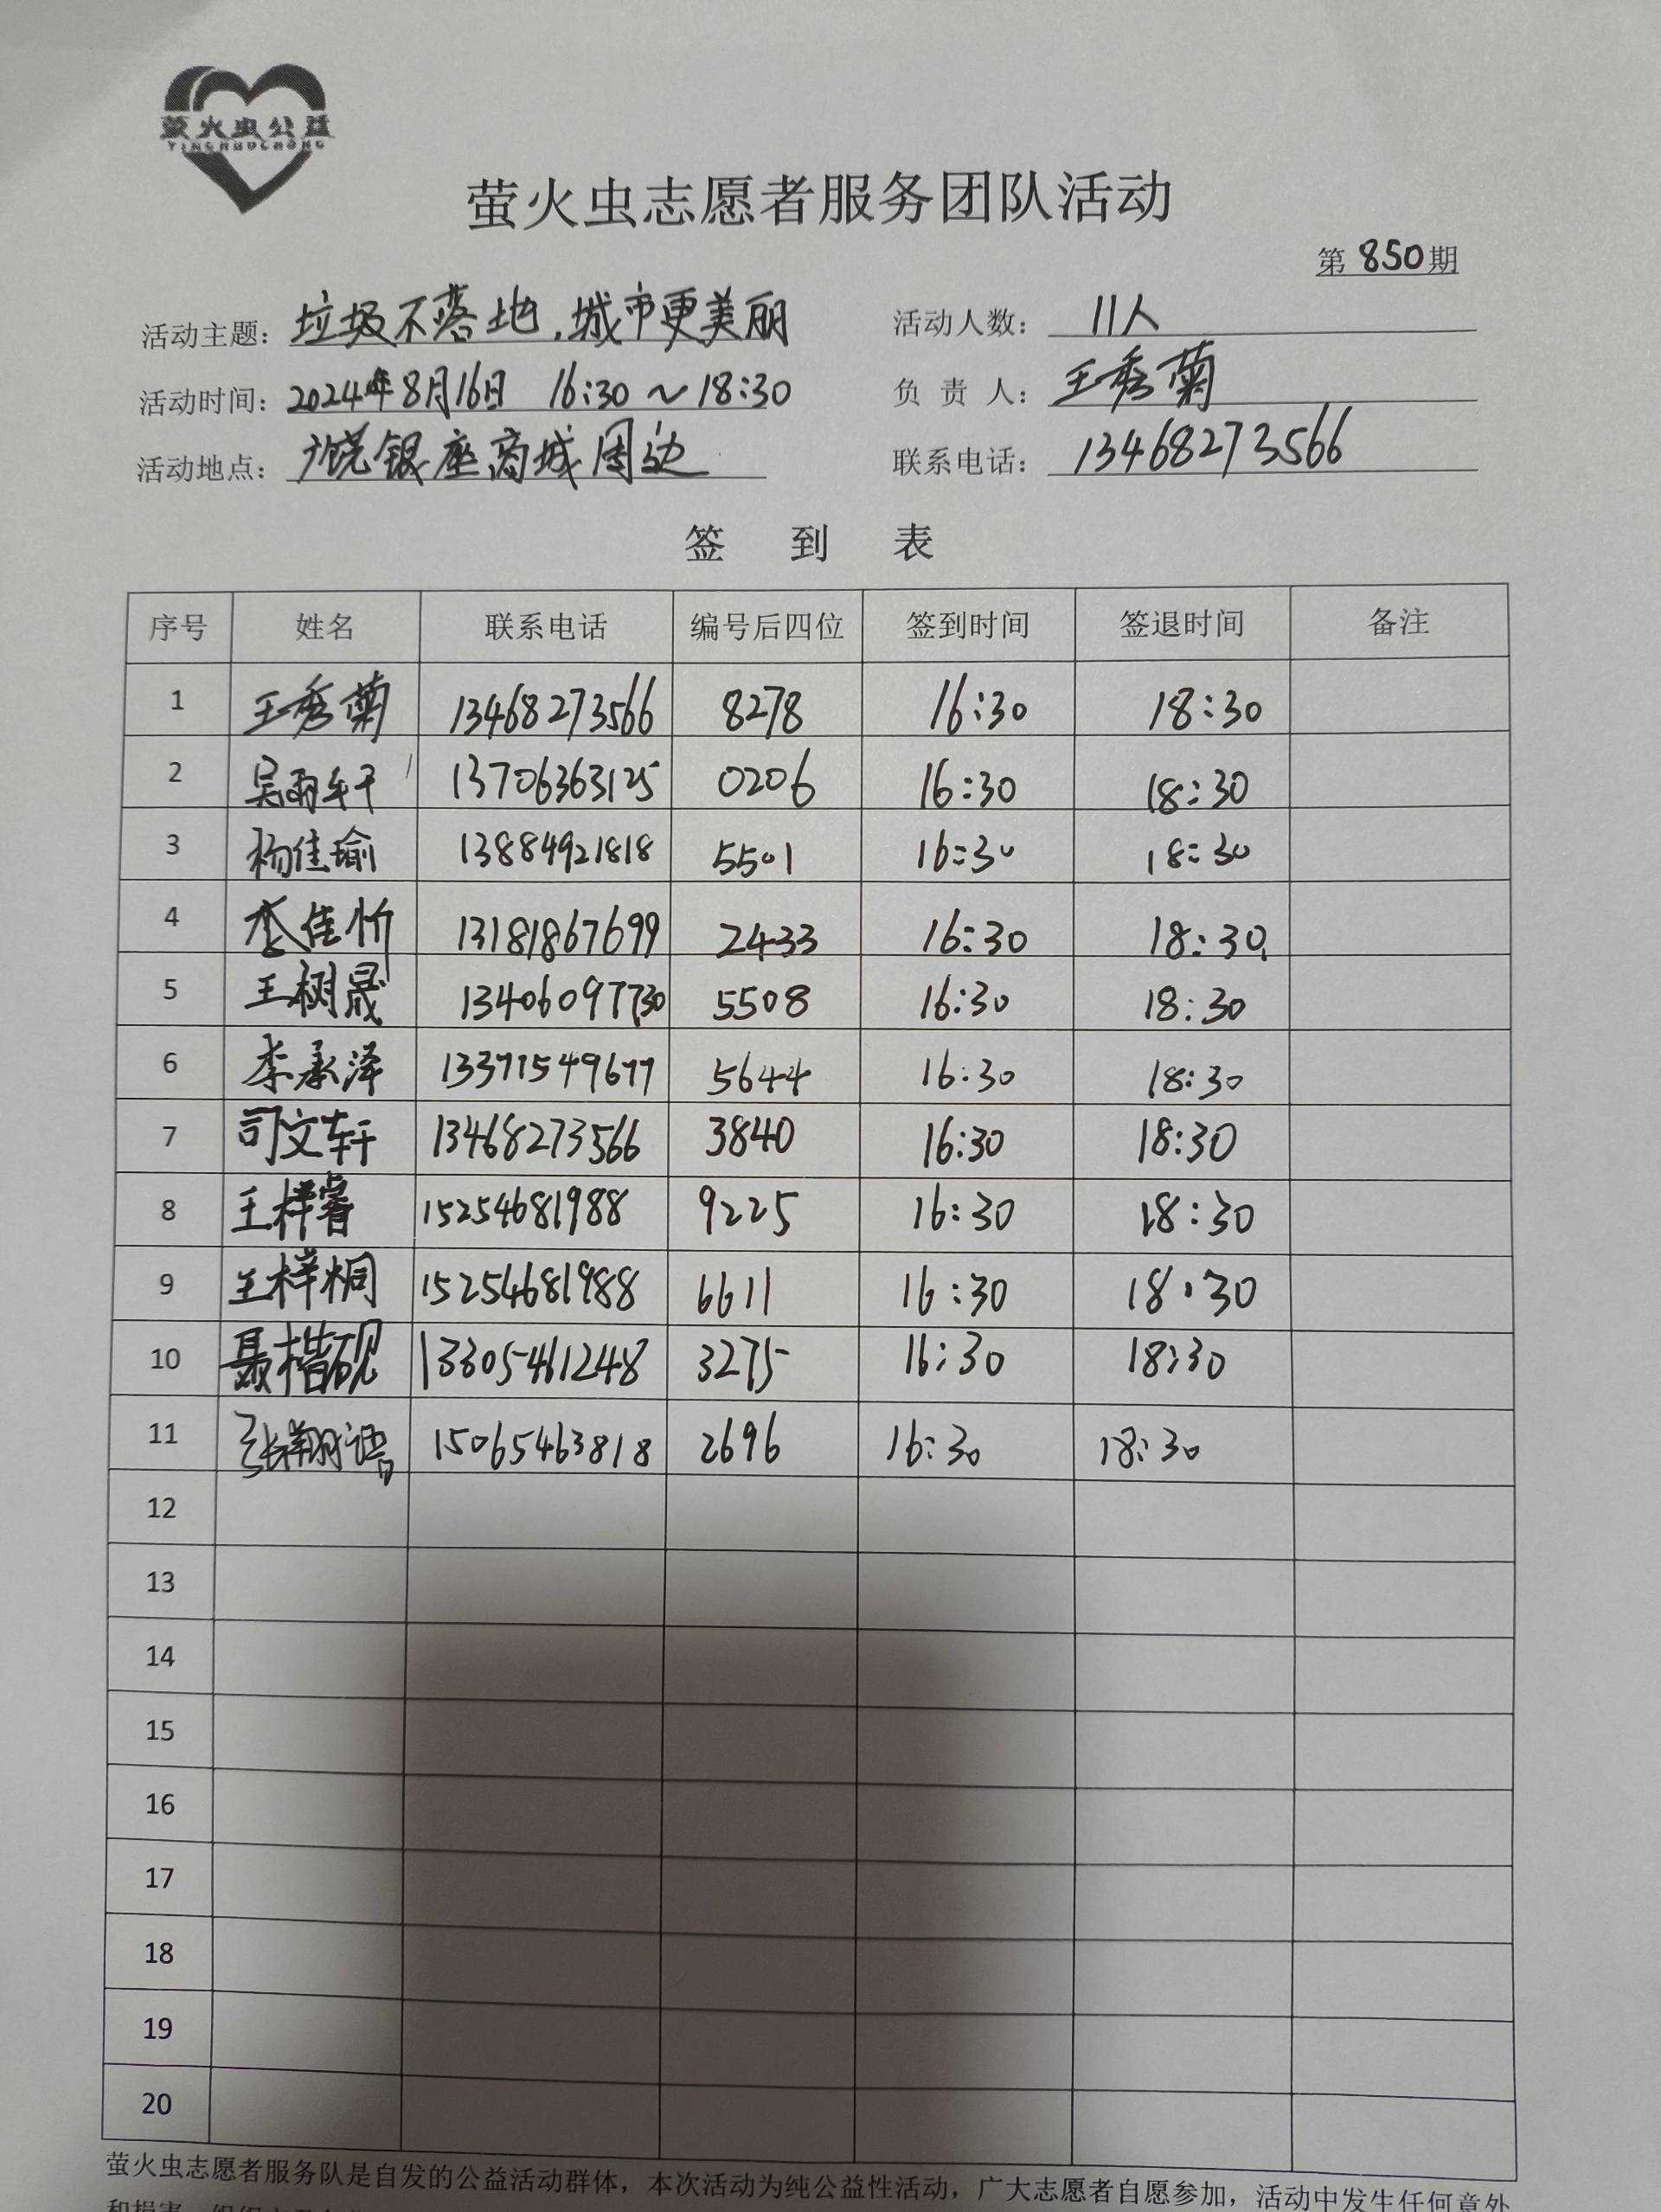 萤火虫公益
YINGHUOCHONG
萤火虫志愿者服务团队活动
第 850 期
活动主题：垃圾不落地，城市更美丽 活动人数：11人
活动时间：2024年8月16日 16:30～18:30 负责人：王秀菊
活动地点：广饶银座商城周边 联系电话：13468273566
签到表
序号 姓名 联系电话 编号后四位 签到时间 签退时间 备注
1 王秀菊 13468273566 8278 16:30 18:30
2 吴雨轩 13706363125 0206 16:30 18:30
3 杨佳瑜 13884921818 5501 16:30 18:30
4 李佳忻 13181867699 2433 16:30 18:30
5 王树晟 13406097730 5508 16:30 18:30
6 李承泽 13371549677 5644 16:30 18:30
7 司文轩 13468273566 3840 16:30 18:30
8 王梓睿 15254681988 9225 16:30 18:30
9 王梓桐 15254681988 6611 16:30 18:30
10 聂楷砚 13305461248 3275 16:30 18:30
11 张翔语 15065463818 2696 16:30 18:30
12
13
14
15
16
17
18
19
20
萤火虫志愿者服务队是自发的公益活动群体，本次活动为纯公益性活动，广大志愿者自愿参加，活动中发生任何意外